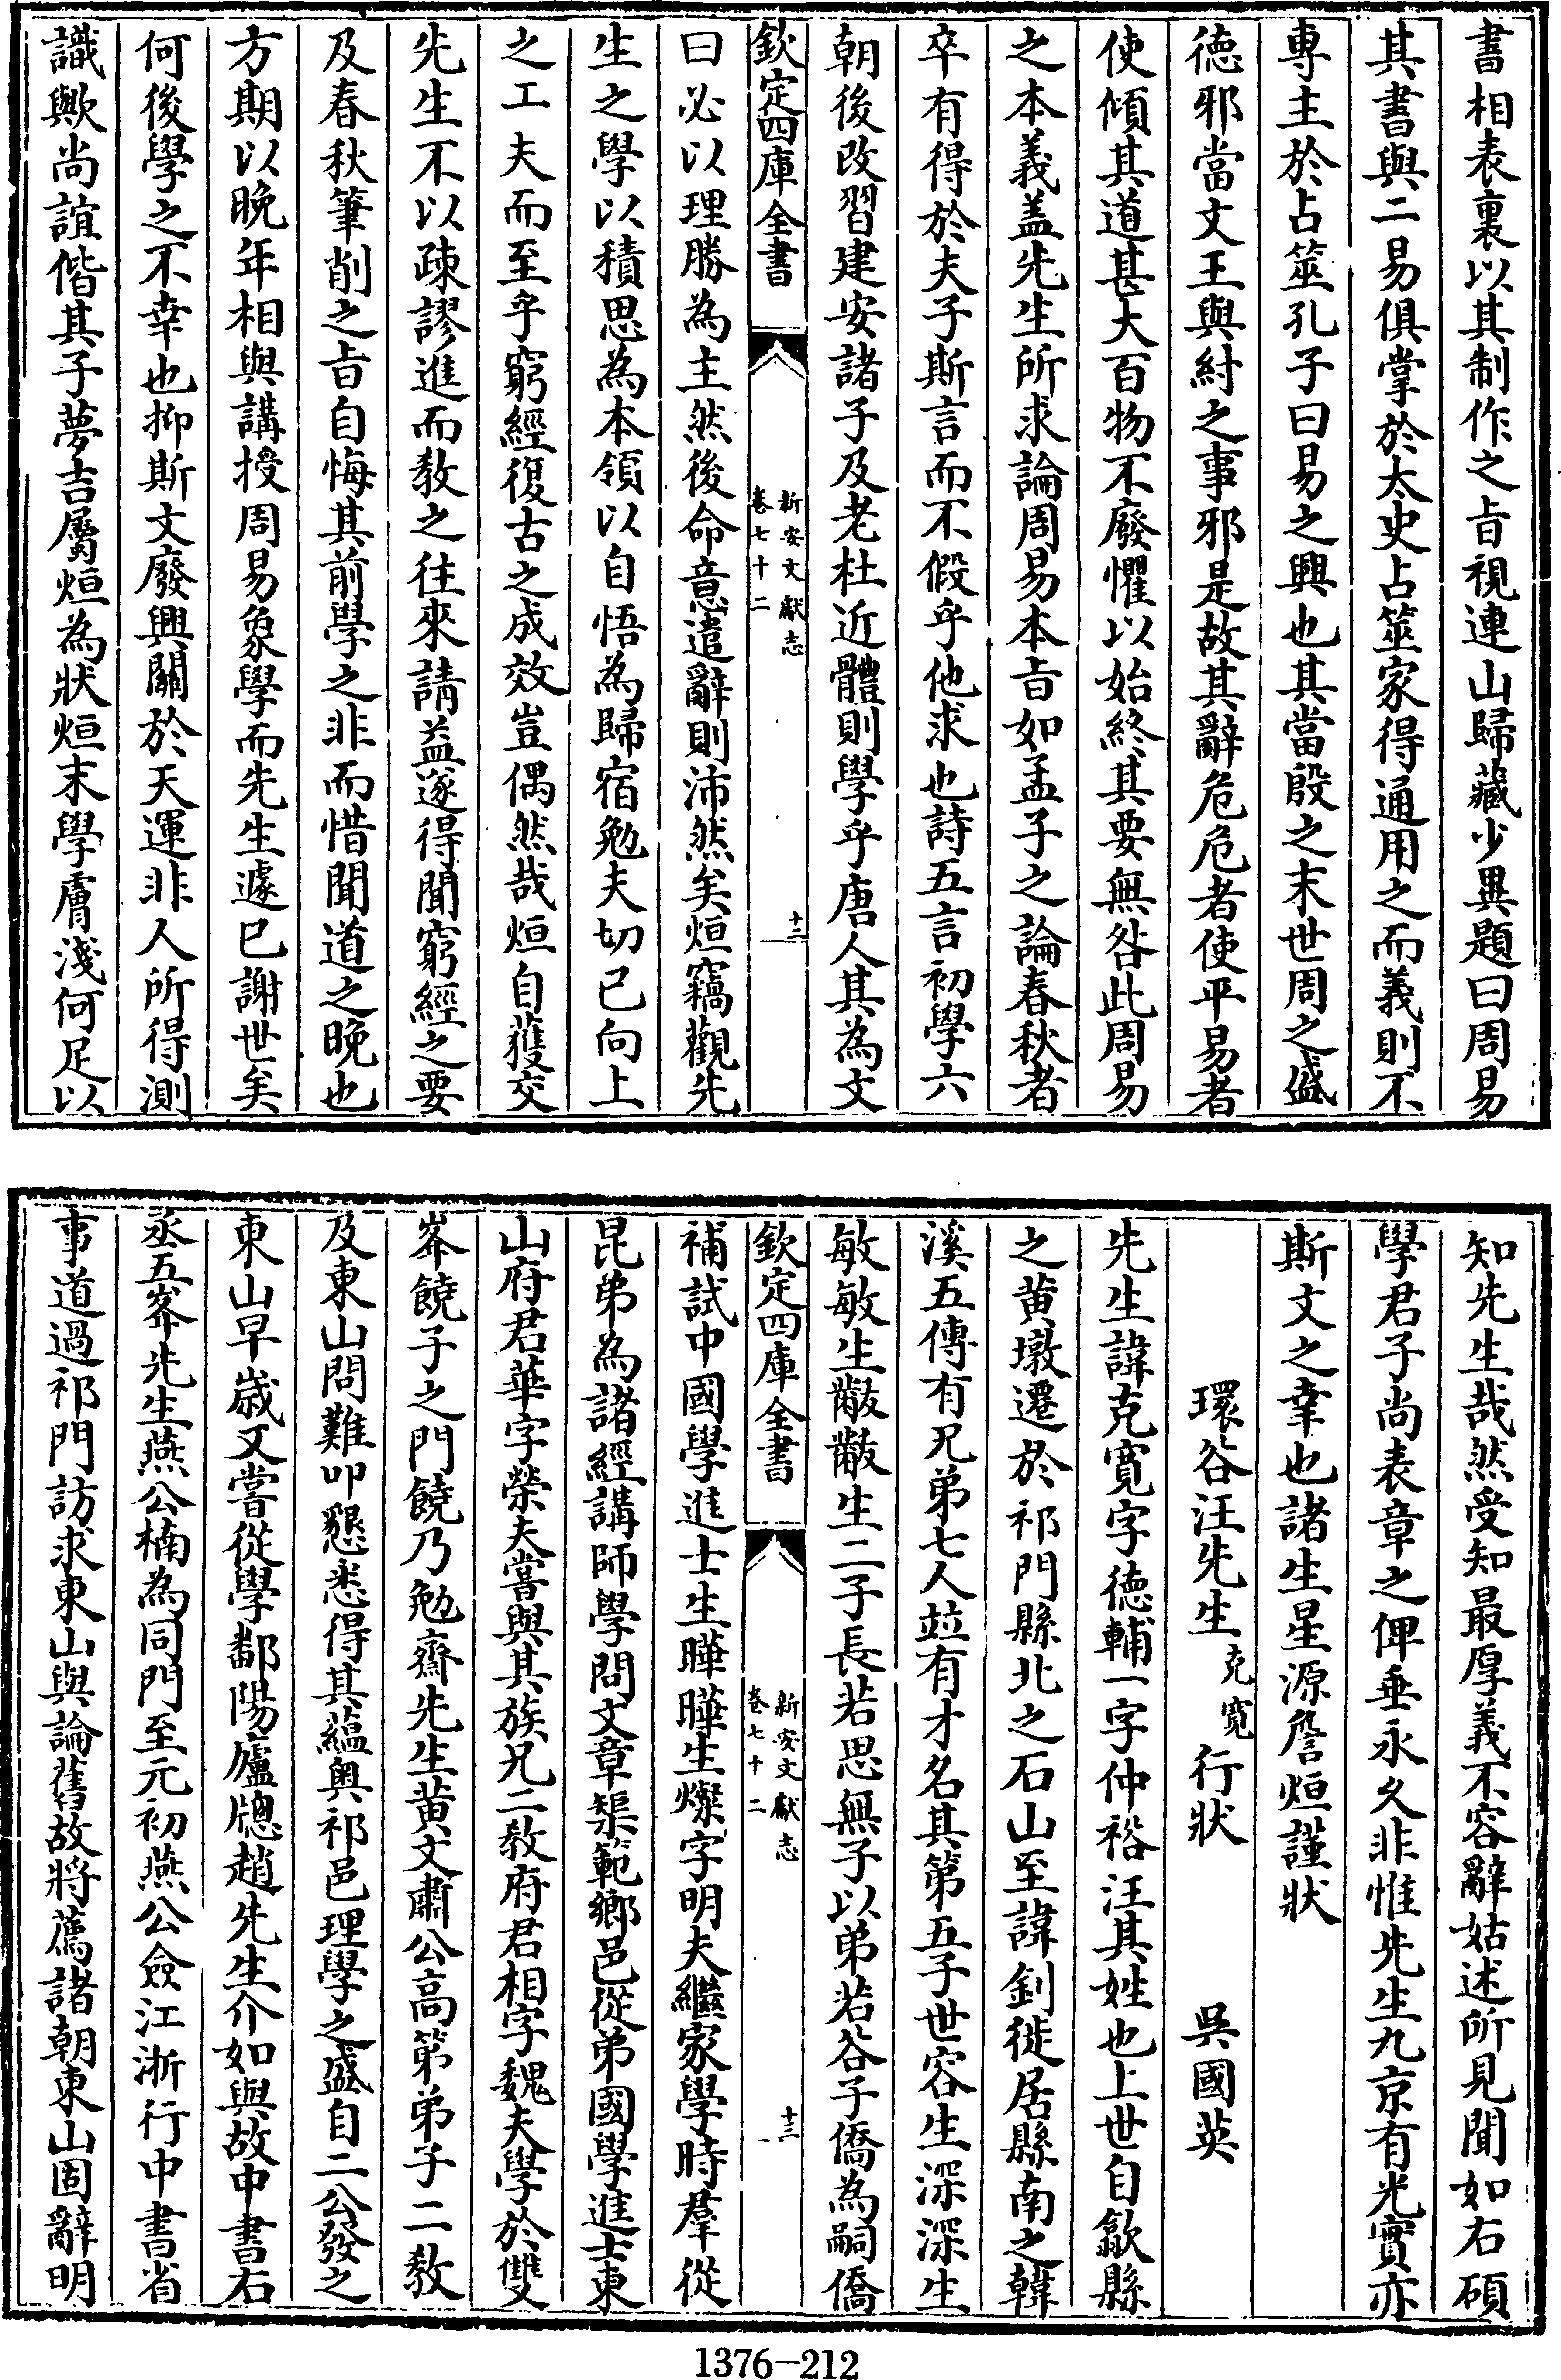 書相表裏以其制作之㫖視連山歸藏少異題曰周易
其書與二易俱掌於太史占筮家得通用之而義則不
専主於占筮孔子曰易之興也其當殷之末世周之盛
徳邪當文王與紂之事邪是故其辭危危者使平易者
使傾其道甚大百物不廢懼以始終其要無咎此周易
之本義盖先生所求論周易本㫖如孟子之論春秋者
卒有得於夫子斯言而不假乎他求也詩五言初學六
朝後改習建安諸子及老杜近體則學乎唐人其為文
欽定四庫全書
新安文獻志
卷七十二
十二
曰必以理勝為主然後命意遣辭則沛然矣烜竊觀先
生之學以積思為本領以自悟為歸宿勉夫切已向上
之工夫而至乎窮經復古之成效豈偶然哉烜自獲交
先生不以疎謬進而教之往來請益遂得聞窮經之要
及春秋筆削之㫖自悔其前學之非而惜聞道之晚也
方期以晚年相與講授周易象學而先生遽已謝世矣
何後學之不幸也抑斯文廢興關於天運非人所得測
識歟尚誼偕其子夢吉屬烜為狀烜末學膚淺何足以
知先生哉然受知最厚義不容辭姑述所見聞如右碩
學君子尚表章之俾垂永久非惟先生九京有光實亦
斯文之幸也諸生星源詹烜謹狀
環谷汪先生克寛行狀 吳國英
先生諱克寛字徳輔一字仲裕汪其姓也上世自歙縣
之黄墩遷於祁門縣北之石山至諱釗徙居縣南之韓
溪五傳有兄弟七人竝有才名其第五子世容生深深生
敏敏生黻黻生二子長若思無子以弟若谷子僑為嗣僑
欽定四庫全書
新安文獻志
卷七十二
十三
補試中國學進士生曄曄生燦字明夫繼家學時羣從
昆弟為諸經講師學問文章榘範鄉邑從弟國學進士東
山府君華字榮夫嘗與其族兄二教府君相字魏夫學於雙
峯饒子之門饒乃勉齋先生黄文肅公高第弟子二教
及東山問難叩懇悉得其藴奥祁邑理學之盛自二公發之
東山早歳又嘗從學鄱陽廬牕趙先生介如與故中書右
丞五峯先生燕公楠為同門至元初燕公僉江浙行中書省
事道過祁門訪求東山與論舊故將薦諸朝東山固辭明
1376-212